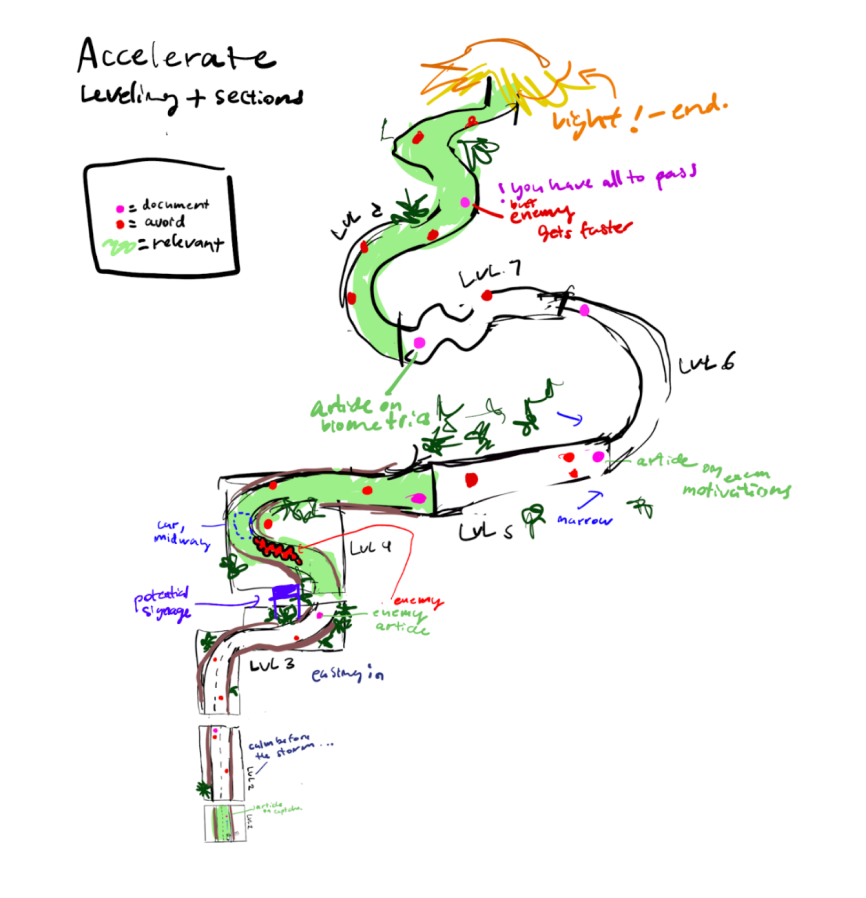 Accelerate
Leveling + sections
= document
= avoid
= relevant
Light! - end.
! you have all to pass
! but
enemy
gets faster
LVL 7
LVL 6
article on
biometrics
article on
motivations
narrow
LVL 5
car,
midway
LVL 4
potential
signage
enemy
enemy
article
LVL 3
easing in
calm before
the storm...
LVL 2
article